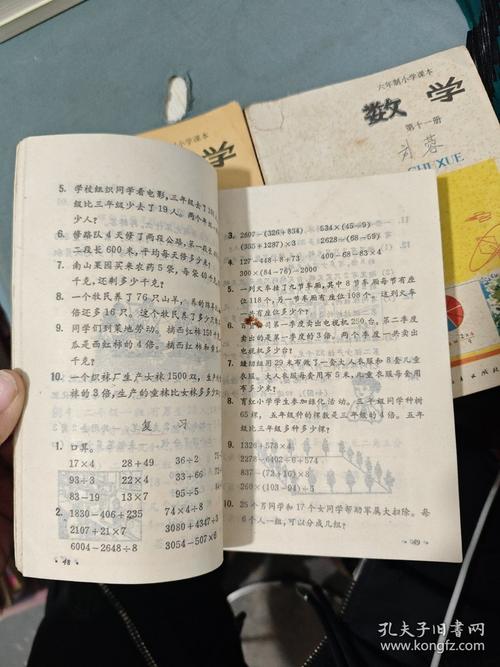 六年制小学课本
数学
第十一册
SHUXUE
小学课本
学
5. 学校组织同学看电影,三年级去了
级比三年级少去了19人。两个年
少人?
6. 修路队4天修了两段公路,第一段长
二段长600米,平均每天修多少米?
7. 南山果园买来农药5袋,每袋40千
千克,还剩多少千克?
8. 一个牧民养了76只山羊,养的绵羊
倍还多16只。这个牧民养了多少只
9. 同学们到菜地劳动。摘西红柿159千
瓜是西红柿的4倍。摘西红柿和黄瓜
千克?
10. 一个织袜厂生产女袜1500双,生产
袜的3倍,生产的童袜比女袜多多少
复 习
1. 口算。
17×4 28+49 36÷2
93÷3 22×4 33+66
83-19 13×7 95÷5
2. 1830-406+235 74×4÷8
2107+21×7 3080+4347÷
6004-2648÷8 3054-507×6
48
3. 2607-(326+834) 534×(45÷9)
(355+1287)×3 2628÷(68-59)
4. 127-448÷8+73 400-68-83×4
300×(84-76)-2000
5. 一列火车挂了九节车厢,其中8节车厢每节有座
位118个,另一节车厢有座位108个。这列火车
一共有座位多少个?
6. 第一季度卖出电视机250台,第二季度
卖出的是第一季度的3倍。两个季度一共卖出
电视机多少台?
7. 缝纫组用29米布裁了一套大人衣服和8套儿童
衣服。大人衣服每套用布5米,儿童衣服每套用
布多少米?
8. 育红小学学生参加绿化活动。三年级同学种树
65棵,五年级种的棵数是三年级的4倍。五年
级比三年级多种多少棵?
9. 1326+578×4
2278-6402÷6+574
837-(72+16)×8
269×(103-94)÷3
10. 25个男同学和17个女同学帮助军属大扫除。每
6个人一组,可以分成几组?
49
孔夫子旧书网
www.kongfz.com